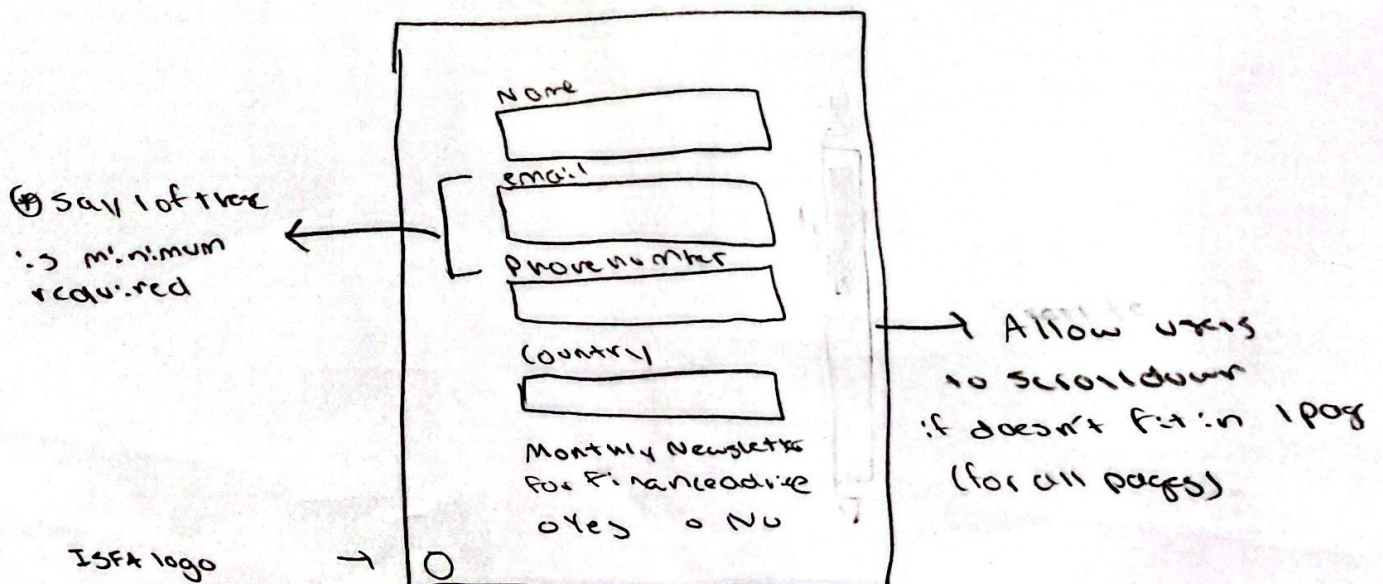 Name
email
Phonenumber
Country
Monthly Newsletter
for Finance advice
o Yes o No
⊕ Say 1 of these
is minimum
required
→ Allow users
to scroll down
if doesn't fit in 1 page
(for all pages)
ISFA logo →